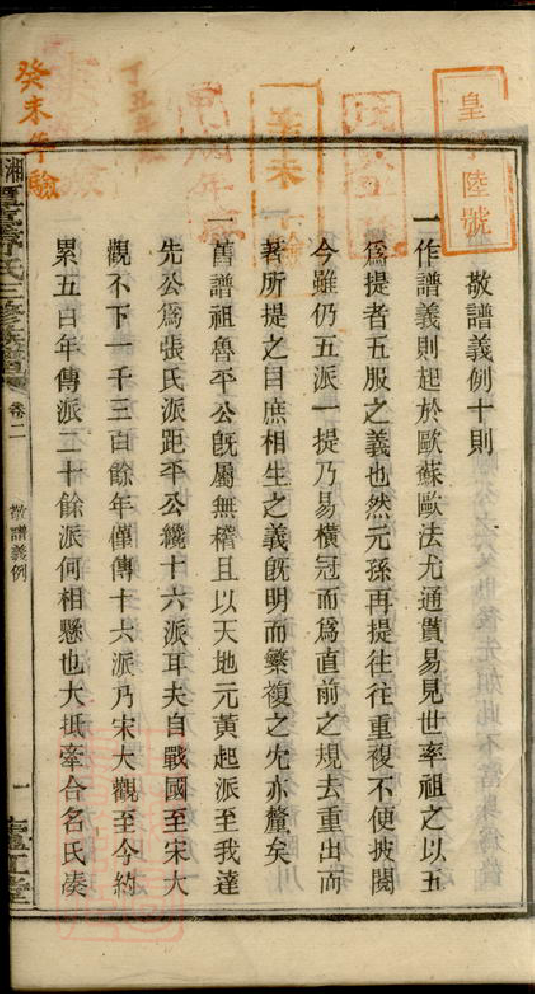 敬譜義例十則
一作譜義則起於歐蘇歐法尤通貫易見世率祖之以五
爲提者五服之義也然元孫再提往往重複不便披閱
今雖仍五派一提乃易橫冠而爲直前之規去重出而
著所提之目庶相生之義旣明而繁複之尤亦釐矣
一舊譜祖魯平公旣屬無稽且以天地元黃起派至我達
先公爲張氏派距平公纔十六派耳夫自戰國至宋大
觀不下一千三百餘年僅傳十六派乃宋大觀至今約
累五百年傳派二十餘派何相懸也大抵牽合名氏湊
卷二
敬譜義例
一
廬江堂
皇字陸號
癸未年驗